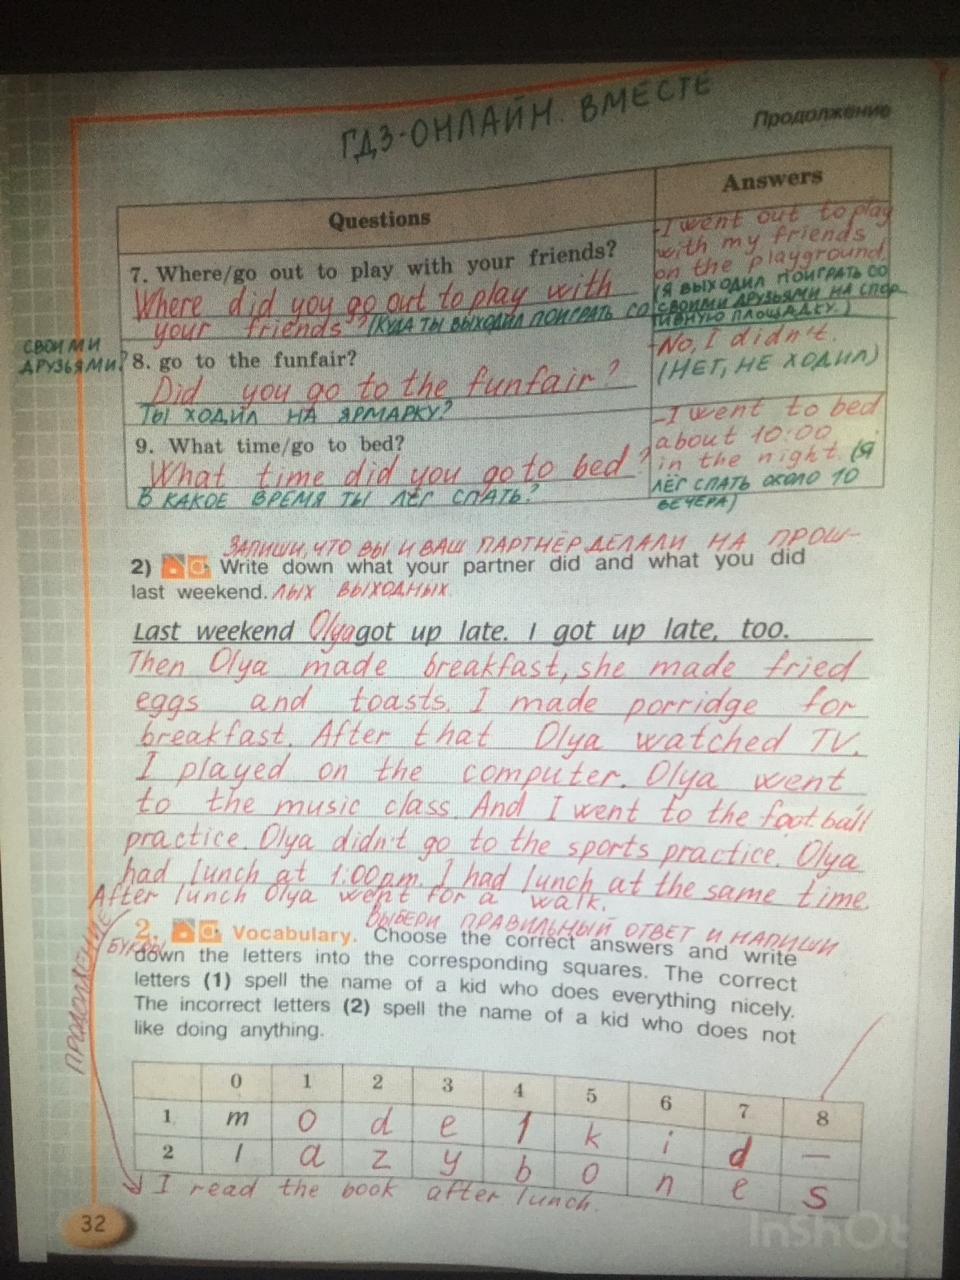 ГДЗ-ОНЛАЙН. ВМЕСТЕ
Продолжение
Questions
Answers
7. Where/go out to play with your friends?
Where did you go out to play with
your friends? (КУДА ТЫ ВЫХОДИЛ ПОИГРАТЬ СО
СВОИМИ
ДРУЗЬЯМИ?
-I went out to play
with my friends
on the playground.
(Я ВЫХОДИЛ ПОИГРАТЬ СО
СВОИМИ ДРУЗЬЯМИ НА СПОР-
ТИВНУЮ ПЛОЩАДКУ.)
8. go to the funfair?
Did you go to the funfair?
ТЫ ХОДИЛ НА ЯРМАРКУ?
-No, I didn't.
(НЕТ, НЕ ХОДИЛ)
9. What time/go to bed?
What time did you go to bed?
В КАКОЕ ВРЕМЯ ТЫ ЛЁГ СПАТЬ?
-I went to bed
about 10:00
in the night. (Я
ЛЁГ СПАТЬ ОКОЛО 10
ВЕЧЕРА)
ЗАПИШИ, ЧТО ВЫ И ВАШ ПАРТНЁР ДЕЛАЛИ НА ПРОШ-
2) Write down what your partner did and what you did
last weekend. ЛЫХ ВЫХОДНЫХ.
Last weekend Olya got up late. I got up late, too.
Then Olya made breakfast, she made fried
eggs and toasts. I made porridge for
breakfast. After that Olya watched TV.
I played on the computer. Olya went
to the music class. And I went to the football
practice. Olya didn't go to the sports practice. Olya
had lunch at 1:00 p.m. I had lunch at the same time.
After lunch Olya went for a walk.
ВЫБЕРИ ПРАВИЛЬНЫЙ ОТВЕТ И НАПИШИ
2. Vocabulary. Choose the correct answers and write
БУКВЫ
down the letters into the corresponding squares. The correct
letters (1) spell the name of a kid who does everything nicely.
The incorrect letters (2) spell the name of a kid who does not
like doing anything.
ПРОДОЛЖЕНИЕ
0 1 2 3 4 5 6 7 8
1 m o d e l k i d —
2 l a z y b o n e s
I read the book after lunch.
32
InShOt